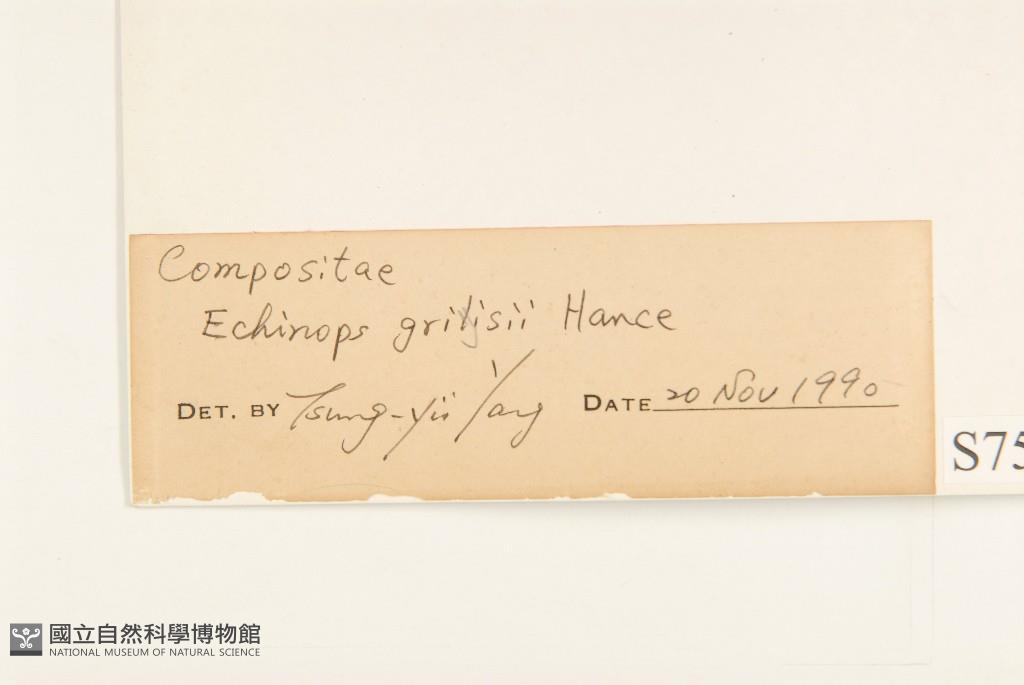 Compositae
Echinops grijsii Hance
DET. BY Tsung-Yii Yang DATE 20 Nov 1990
S75
國立自然科學博物館
NATIONAL MUSEUM OF NATURAL SCIENCE